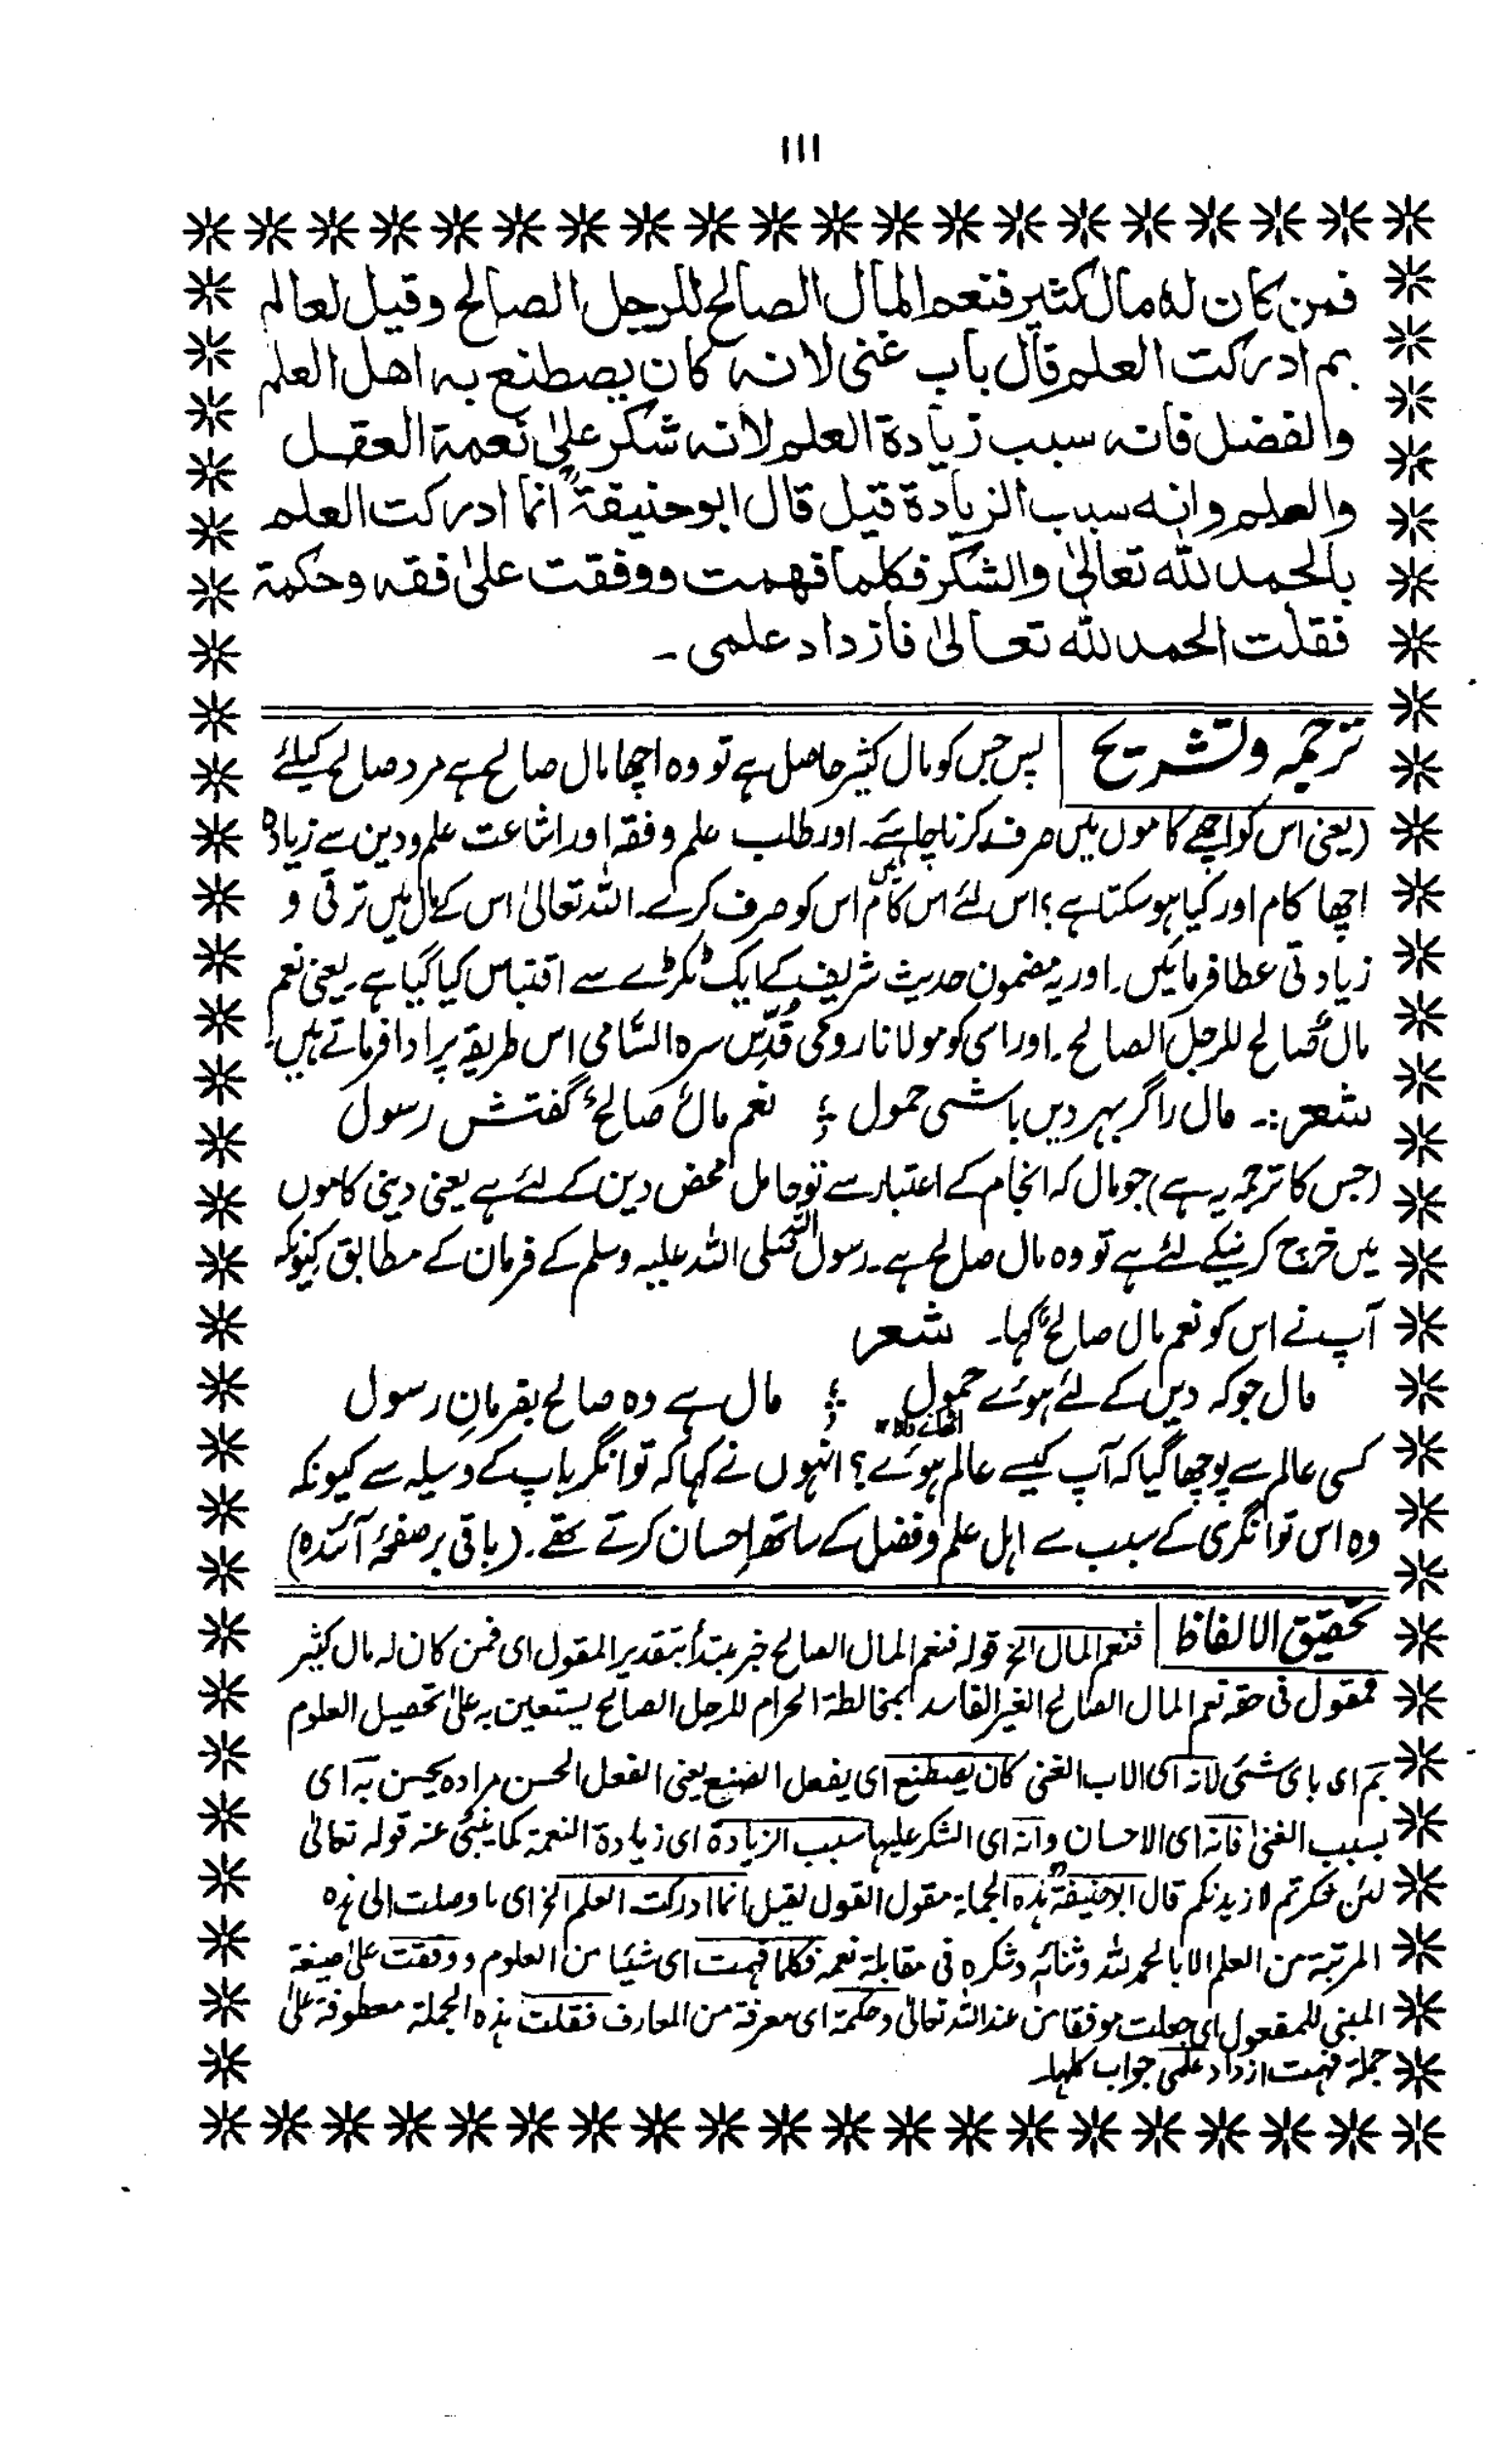 ۱۱۱
فمن كان له مال كثير فنعم المال الصالح للرجل الصالح وقيل لعالم
بم ادركت العلم قال باب غنى لانه كان يصطنع به اهل العلم
والفضل فانه سبب زيادة العلم لانه شكر على نعمة العقل
والعلم وانه سبب الزيادة قيل قال ابوحنيفة انما ادركت العلم
بالحمد لله تعالىٰ والشكر فكلما فهمت ووفقت علىٰ فقه وحكمة
فقلت الحمد لله تعالىٰ فازداد علمى۔
ترجمہ وتشریح | پس جس کو مال کثیر حاصل ہے تو وہ اچھا مال صالح ہے مرد صالح کیلئے
(یعنی اس کو اچھے کاموں میں صرف کرنا چاہئے۔ اور طلب علم و فقہ اور اشاعت علم ودین سے زیادہ
اچھا کام اور کیا ہو سکتا ہے؟ اس لئے اس کام میں اس کو صرف کرے۔ اللہ تعالیٰ اس کے مال میں ترقی و
زیادتی عطا فرمائیں۔ اور یہ مضمون حدیث شریف کے ایک ٹکڑے سے اقتباس کیا گیا ہے۔ یعنی نعم
مالٌ صالح للرجل الصالح۔ اور اسی کو مولانا رومی قُدِّس سرہ السّامی اس طریقہ پر ادا فرماتے ہیں۔
شعر:۔ مال را گر بہر دیں باشی حمول ؛ نعم مالٌ صالحٌ گفتش رسول
(جس کا ترجمہ یہ ہے) جو مال کہ انجام کے اعتبار سے تو حامل محض دین کے لئے ہے یعنی دینی کاموں
میں خرچ کرنیکے لئے ہے تو وہ مال صالح ہے۔ رسول اللہ صلی اللہ علیہ وسلم کے فرمان کے مطابق کیونکہ
آپ نے اس کو نعم مال صالحٌ کہا۔ شعر
مال جو کہ دیں کے لئے ہوئے حمول ؛ مال ہے وہ صالح بفرمانِ رسول
اٹھانے والا
کسی عالم سے پوچھا گیا کہ آپ کیسے عالم ہوئے؟ انہوں نے کہا کہ توانگر باپ کے وسیلہ سے کیونکہ
وہ اس توانگری کے سبب سے اہل علم وفضل کے ساتھ احسان کرتے تھے۔ (باقی بر صفحۂ آئندہ)
تحقیق الالفاظ | فنعم المال الخ قولہ فنعم المال الصالح خبر مبتدأ بتقدیر المقول ای فمن کان لہ مال کثیر
فمقول فی حقہ نعم المال الصالح الغیر الفاسد بمخالطۃ الحرام للرجل الصالح یستعین بہ علیٰ تحصیل العلوم
بم ای بای شئی لانہ ای الاب الغنی کان یصطنع ای یفعل الصنع یعنی الفعل الحسن مرادہ یحسن بہ ای
بسبب الغنیٰ فانہ ای الاحسان وانہ ای الشکر علیہا سبب الزیادۃ ای زیادۃ النعمۃ کما ینبئ عنہ قولہ تعالیٰ
لئن شکرتم لازیدنکم قال ابوحنیفۃؒ ہذہ الجملۃ مقول القول لقیل انما ادرکت العلم الخ ای ما وصلت الی ہذہ
المرتبۃ من العلم الا بالحمد للہ وثنائہ وشکرہ فی مقابلۃ نعمہ فکلما فہمت ای شیئا من العلوم ووفقت علیٰ صیغۃ
المبنی للمفعول ای جعلت موفقا من عند اللہ تعالیٰ وحکمۃ ای معرفۃ من المعارف فقلت ہذہ الجملۃ معطوفۃ علیٰ
جملۃ فہمت ازداد علمی جواب کلما۔